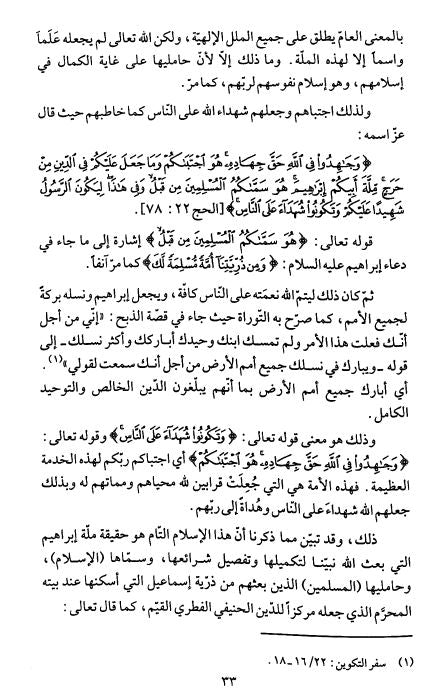 بالمعنى العامّ يطلق على جميع الملل الإلهيّة، ولكن الله تعالى لم يجعله عَلَماً
واسماً إلا لهذه الملّة. وما ذلك إلاّ لأنّ حامليها على غاية الكمال في
إسلامهم، وهو إسلام نفوسهم لربهم، كما مرّ.
ولذلك اجتباهم وجعلهم شهداء الله على النّاس كما خاطبهم حيث قال
عزّ اسمه:
﴿وَجَـٰهِدُوا۟ فِي ٱللَّهِ حَقَّ جِهَادِهِۦۚ هُوَ ٱجْتَبَىٰكُمْ وَمَا جَعَلَ عَلَيْكُمْ فِي ٱلدِّينِ مِنْ
حَرَجٍۚ مِّلَّةَ أَبِيكُمْ إِبْرَٰهِيمَۚ هُوَ سَمَّىٰكُمُ ٱلْمُسْلِمِينَ مِن قَبْلُ وَفِي هَـٰذَا لِيَكُونَ ٱلرَّسُولُ
شَهِيدًا عَلَيْكُمْ وَتَكُونُوا۟ شُهَدَآءَ عَلَى ٱلنَّاسِۚ﴾ [الحج ٢٢ : ٧٨].
قوله تعالى: ﴿هُوَ سَمَّىٰكُمُ ٱلْمُسْلِمِينَ مِن قَبْلُ﴾ إشارة إلى ما جاء في
دعاء إبراهيم عليه السلام: ﴿وَمِن ذُرِّيَّتِنَآ أُمَّةً مُّسْلِمَةً لَّكَ﴾ كما مرّ آنفاً.
ثمّ كان ذلك ليتمّ الله نعمته على النّاس كافّة، ويجعل إبراهيم ونسله بركةً
لجميع الأمم، كما صرّح به التّوراة حيث جاء في قصّة الذبح: «إنّي من أجل
أنّك فعلت هذا الأمر ولم تمسك ابنك وحيدك أباركك وأكثر نسلك ـ إلى
قوله ـ ويبارك في نسلك جميع أمم الأرض من أجل أنك سمعت لقولي»(١).
أي أبارك جميع أمم الأرض بما أنّهم يبلّغون الدّين الخالص والتوحيد
الكامل.
وذلك هو معنى قوله تعالى: ﴿وَتَكُونُوا۟ شُهَدَآءَ عَلَى ٱلنَّاسِۚ﴾ وقوله تعالى:
﴿وَجَـٰهِدُوا۟ فِي ٱللَّهِ حَقَّ جِهَادِهِۦۚ هُوَ ٱجْتَبَىٰكُمْ﴾ أي اجتباكم ربّكم لهذه الخدمة
العظيمة. فهذه الأمة هي التي جُعِلَتْ قرابين لله محياهم ومماتهم له وبذلك
جعلهم الله شهداء على النّاس وهُداةً إلى ربّهم.
ذلك، وقد تبيّن مما ذكرنا أنّ هذا الإسلام التّام هو حقيقة ملّة إبراهيم
التي بعث الله نبيّنا لتكميلها وتفصيل شرائعها، وسمّاها (الإسلام)،
وحامليها (المسلمين) الذين بعثهم من ذرّية إسماعيل التي أسكنها عند بيته
المحرّم الذي جعله مركزاً للدّين الحنيفي الفطري القيّم، كما قال تعالى:
(١) سفر التكوين: ٢٢/١٦ـ١٨.
٣٣